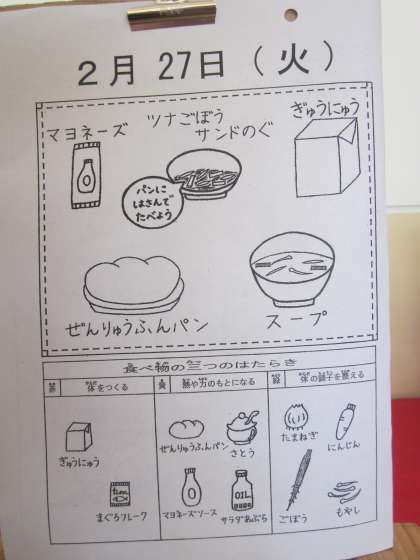 2月 27日(火)
マヨネーズ
ツナごぼう
サンドのぐ
ぎゅうにゅう
パンに
はさんで
たべよう
ぜんりゅうふんパン
スープ
食べ物の三つのはたらき
体をつくる
熱や力のもとになる
体の調子を整える
ぎゅうにゅう
まぐろフレーク
ぜんりゅうふんパン
さとう
マヨネーズソース
OIL
サラダあぶら
たまねぎ
にんじん
ごぼう
もやし